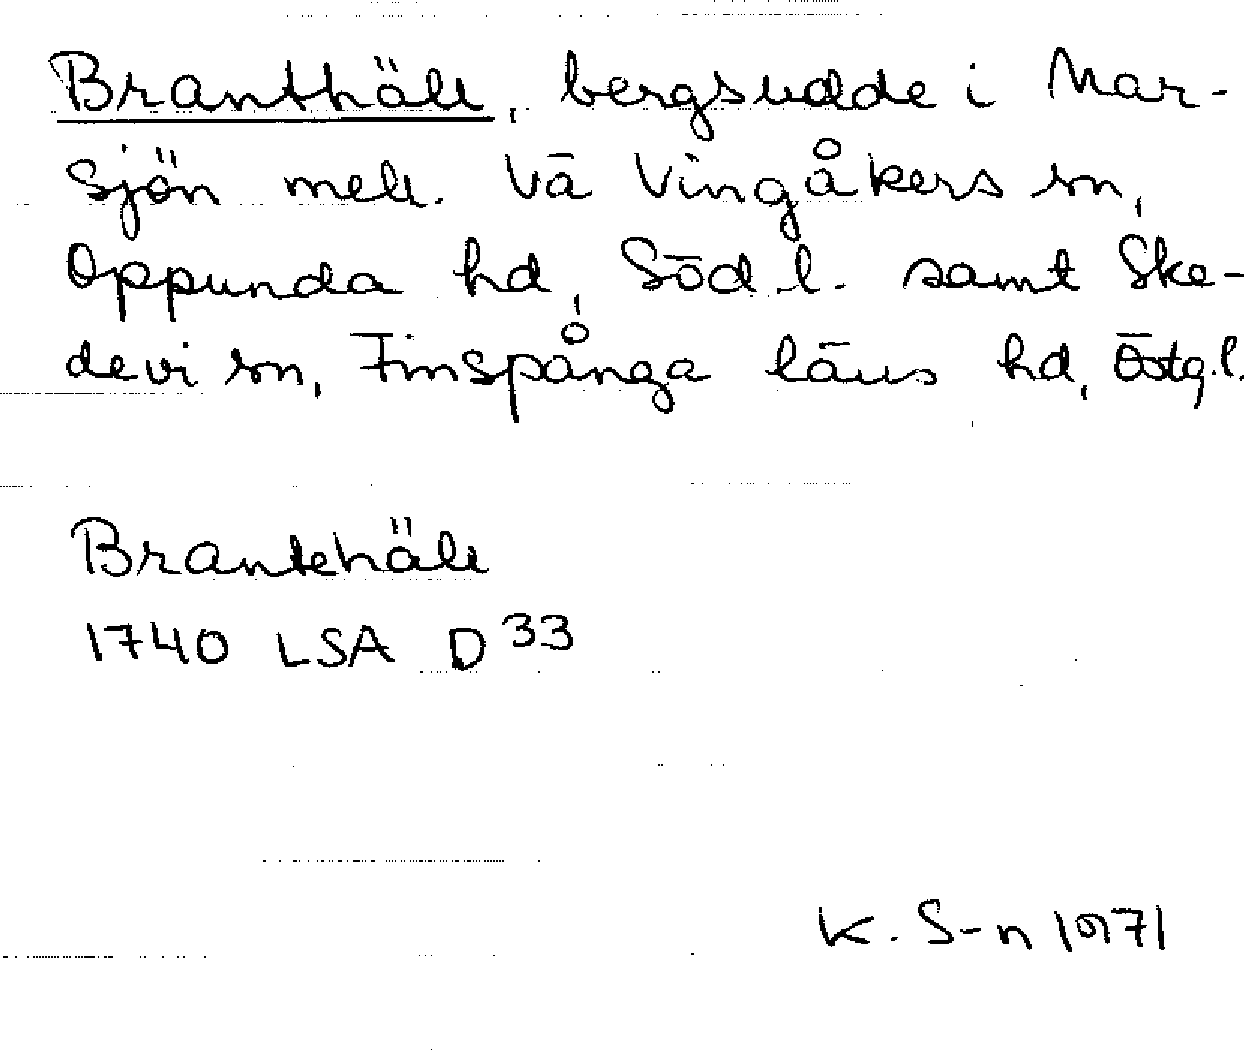 Branthäll, bergsudde i Mar-
sjön mell. Vä Vingåkers sn,
Oppunda hd, Söd.l. samt Ske-
devi sn, Finspånga läns hd, Östg.l.
Brantehäll
1740 LSA D 33
K. S-n 1971